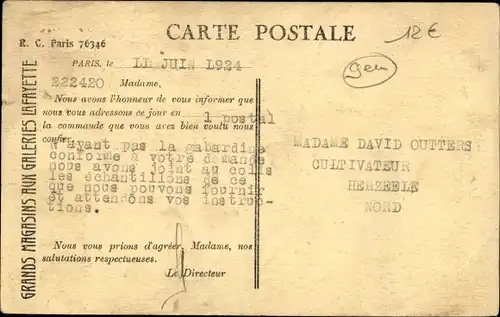 CARTE POSTALE
12€
R. C. Paris 76346
GRANDS MAGASINS AUX GALERIES LAFAYETTE
PARIS, le LE JUIN 1924
322420 Madame,
Nous avons l'honneur de vous informer que
nous vous adressons ce jour en
1 postal
la commande que vous avez bien voulu nous
confier.
N'ayant pas la gabardine
conforme à votre demande
nous avons joint au colis
les échantillons de ce
que nous pouvons fournir
et attendons vos instruc-
tions.
Nous vous prions d'agréer, Madame, nos
salutations respectueuses.
Le Directeur
MADAME DAVID OUTTERS
CULTIVATEUR
HERZEELE
NORD